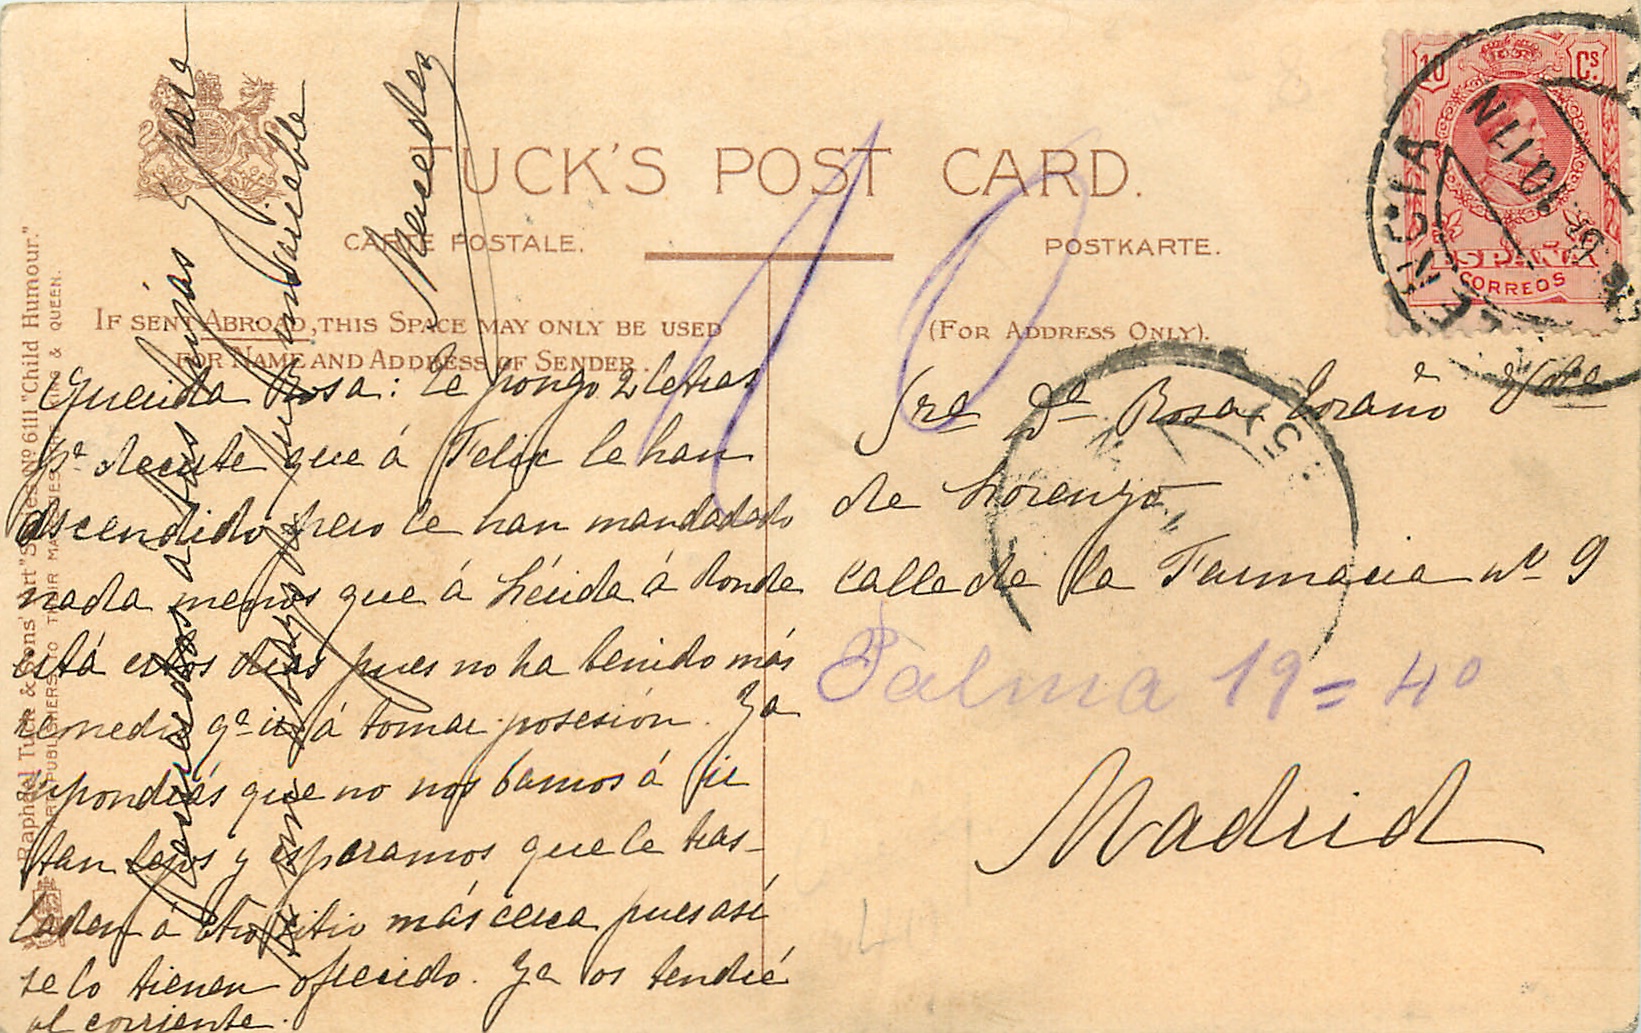 TUCK'S POST CARD.
CARTE POSTALE.
POSTKARTE.
IF SENT ABROAD, THIS SPACE MAY ONLY BE USED
FOR NAME AND ADDRESS OF SENDER.
(FOR ADDRESS ONLY).
Raphael Tuck & Sons' "Art" Series No 6111 "Child Humour."
ART PUBLISHERS TO THEIR MAJESTIES THE KING & QUEEN.
10 Cs
ESPAÑA
CORREOS
10
Querida Rosa: te pongo 2 letras
pa decirte que á Felix le han
ascendido pero le han mandadado
nada menos que á Lérida á donde
está estos dias pues no ha tenido más
remedio qe ir á tomar posesión. Ya
supondrás que no nos bamos á ir
tan lejos y esperamos que le tras-
laden á otro sitio más cerca pues así
se lo tienen ofrecido. Ya os tendré
al corriente.
Recuerdos a tus hijas y para
ti un abrazo de tu invariable
Mercedes
Sra Da Rosa Loraño Vda
de Lorenzo
Calle de la Farmacia no 9
Palma 19 = 4o
Madrid